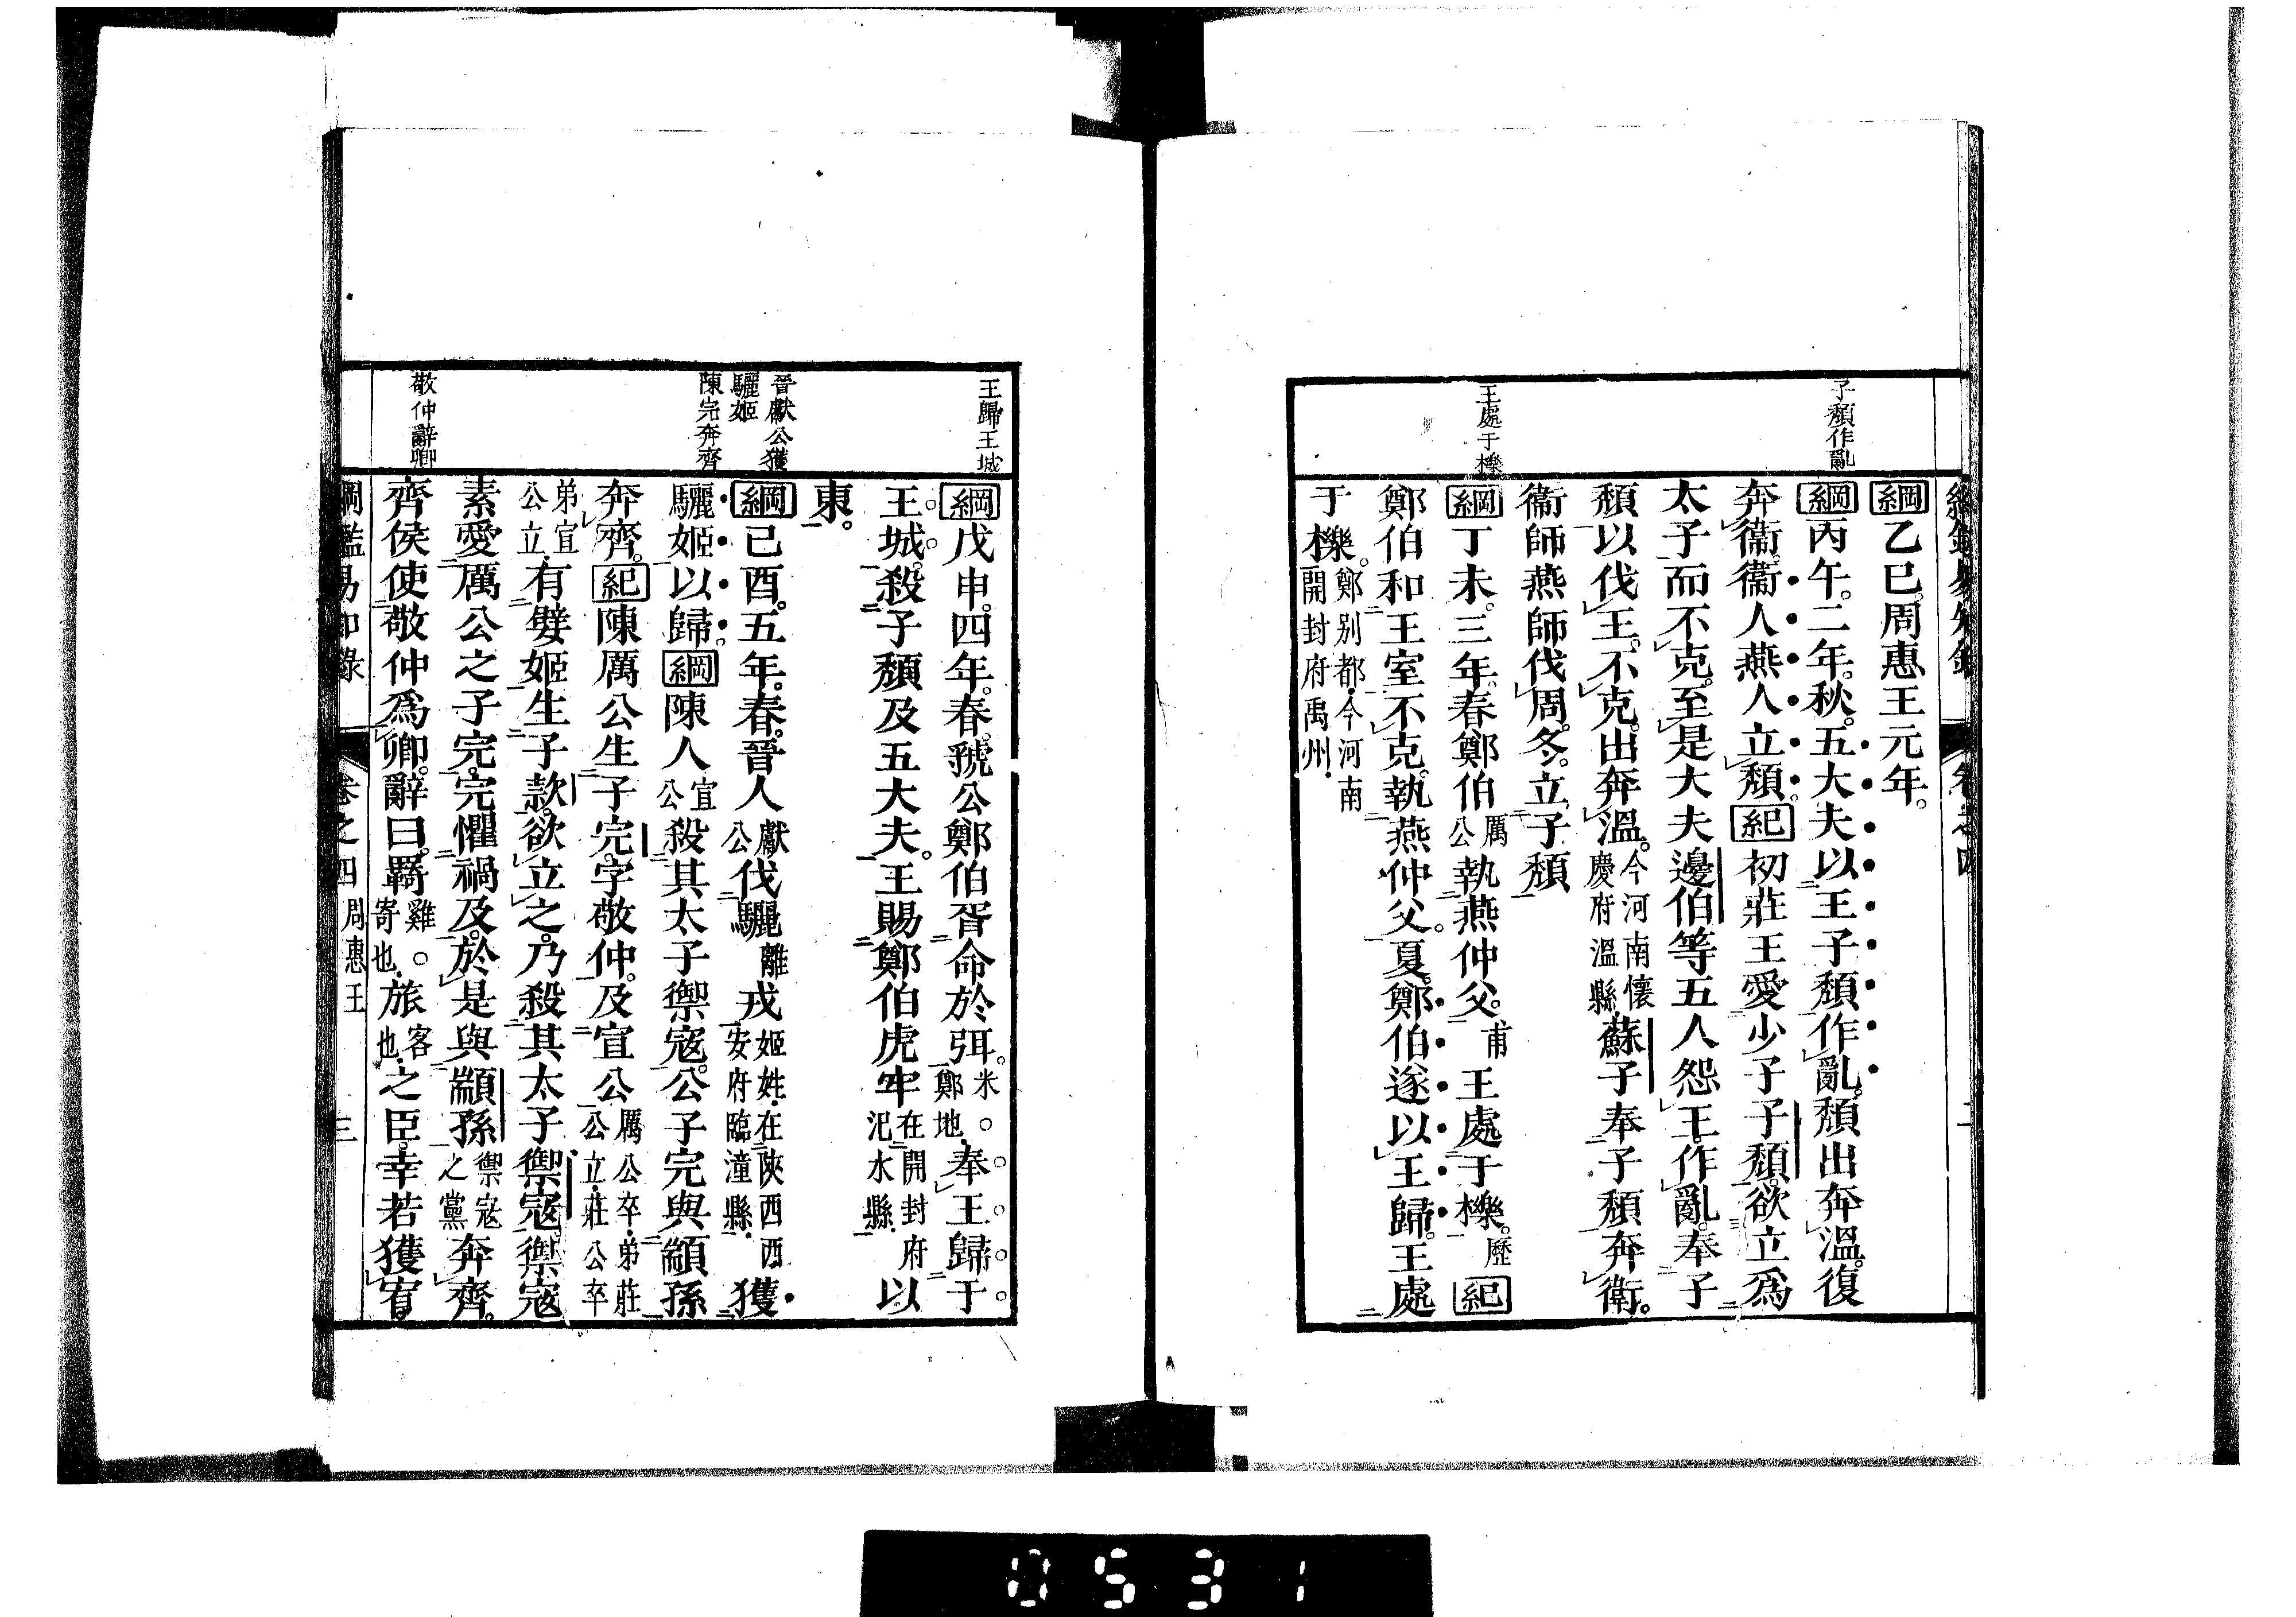 子頽作亂
王處于櫟
綱乙巳。周惠王元年。
綱丙午。二年。秋。五大夫以王子頽作亂。頽出奔溫。復
奔衞。衞人燕人立頽。紀初莊王愛少子子頽。欲立爲
太子而不克。至是大夫邊伯等五人怨王。作亂。奉子
頽以伐王。不克。出奔溫。今河南懷慶府溫縣蘇子奉子頽奔衞。
衞師燕師伐周。冬。立子頽
綱丁未。三年。春。鄭伯厲公執燕仲父。甫王處于櫟。歷紀
鄭伯和王室不克。執燕仲父。夏。鄭伯遂以王歸。王處
于櫟。鄭別都今河南開封府禹州
王歸王城
晉獻公獲
驪姬
陳完奔齊
敬仲辭卿
綱戊申。四年。春。虢公鄭伯胥命於弭。米。鄭地奉王歸于
王城。殺子頽及五大夫。王賜鄭伯虎牢在開封府汜水縣以
東。
綱己酉。五年。春。晉人獻公伐驪離戎姬姓在陝西西安府臨潼縣獲
驪姬以歸。綱陳人宣公殺其太子禦寇。公子完與顓孫
奔齊。紀陳厲公生子完。字敬仲。及宣公厲公卒弟莊公立莊公卒
弟宣公立有嬖姬生子款。欲立之。乃殺其太子禦寇。禦寇
素愛厲公之子完。完懼禍及。於是與顓孫禦寇之黨奔齊。
齊侯使敬仲爲卿。辭曰。羇雞。寄也旅客也之臣。幸若獲宥
綱鑑易知錄 卷之四 周惠王 三